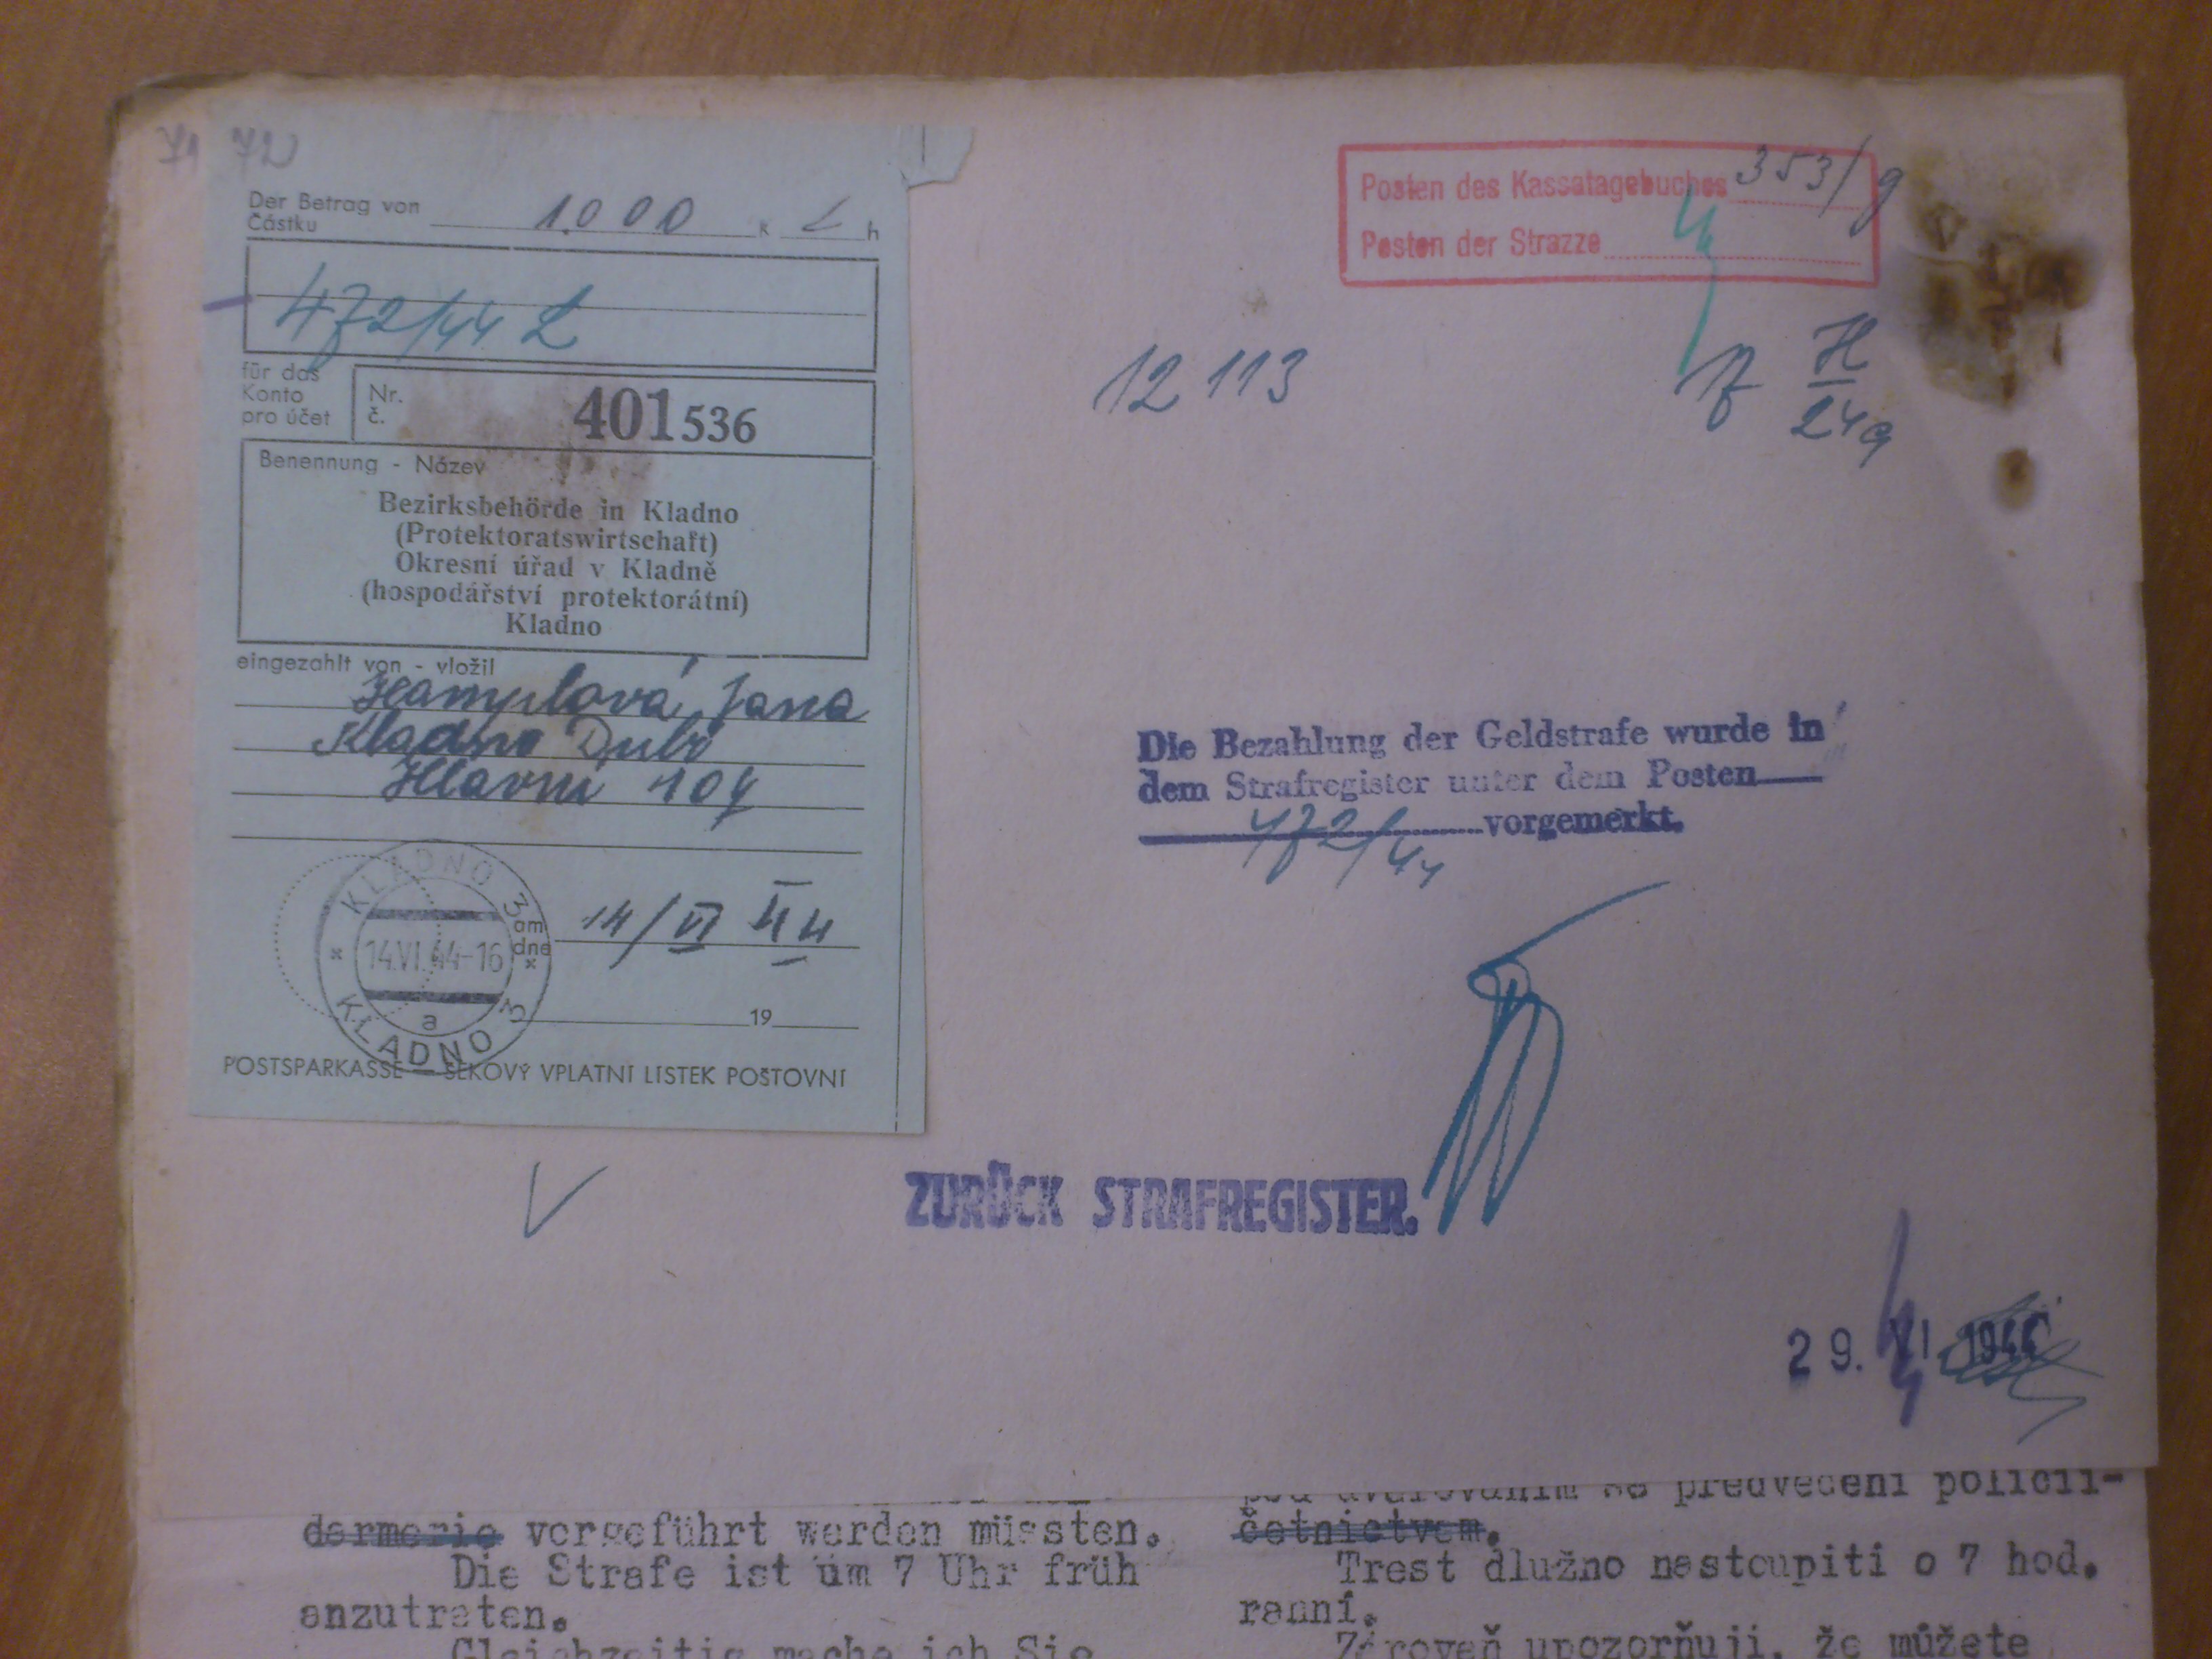 71 72
Der Betrag von
Částku
1.000 K h
472/44
für das
Konto
pro účet
Nr.
č.
401536
Benennung - Název
Bezirksbehörde in Kladno
(Protektoratswirtschaft)
Okresní úřad v Kladně
(hospodářství protektorátní)
Kladno
eingezahlt von - vložil
Hamplová Jana
Kladno Dubí
Hlavní 104
KLADNO 3
14.VI.44-16
a
KLADNO 3
am
dne
14/VI 44
19
POSTSPARKASSE - ŠEKOVÝ VPLATNÍ LÍSTEK POŠTOVNÍ
Posten des Kassatagebuches 353/9
Posten der Strazze
12 113
H
24a
Die Bezahlung der Geldstrafe wurde in
dem Strafregister unter dem Posten
472/44 vorgemerkt.
ZURÜCK STRAFREGISTER.
29. VI 1944
předvedení policií-
dermerie vorgeführt werden müssten.
četnictvem.
Die Strafe ist um 7 Uhr früh
anzutreten.
Trest dlužno nastoupiti o 7 hod.
ranní.
Gleichzeitig mache ich Sie
Zároveň upozorňuji, že můžete